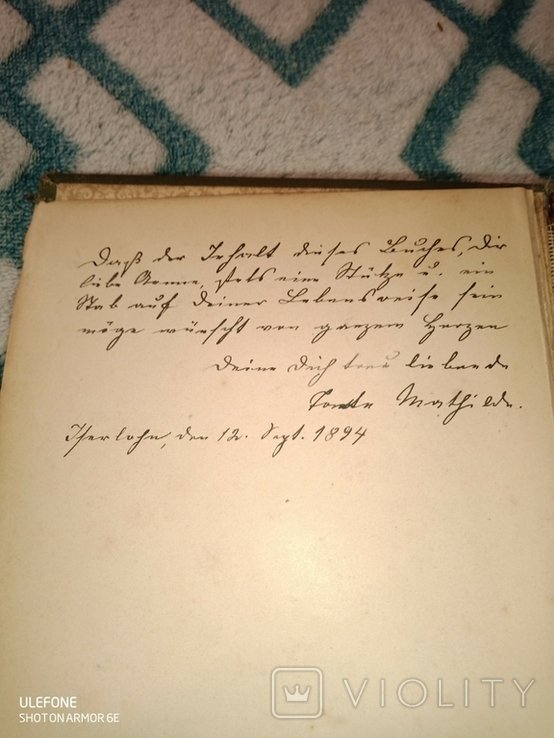 Daß der Inhalt dieses Buches, dir
liebe Aenne, stets eine Stütze u. ein
Stab auf Deiner Lebensreise sein
möge wünscht von ganzem Herzen
Deine Dich treu liebende
Tante Mathilde.
Iserlohn, den 12. Sept. 1894
ULEFONE
SHOT ON ARMOR 6E
VIOLITY